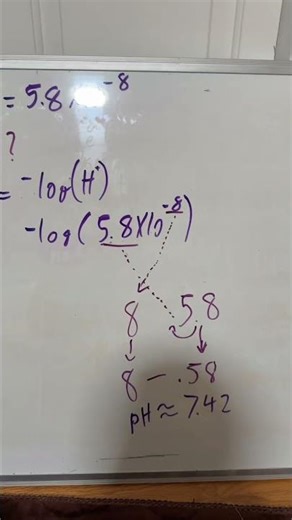 = 5.8 -8
?
= -log(H⁺)
-log(5.8x10⁻⁸)
8 5.8
8 - .58
pH ≈ 7.42